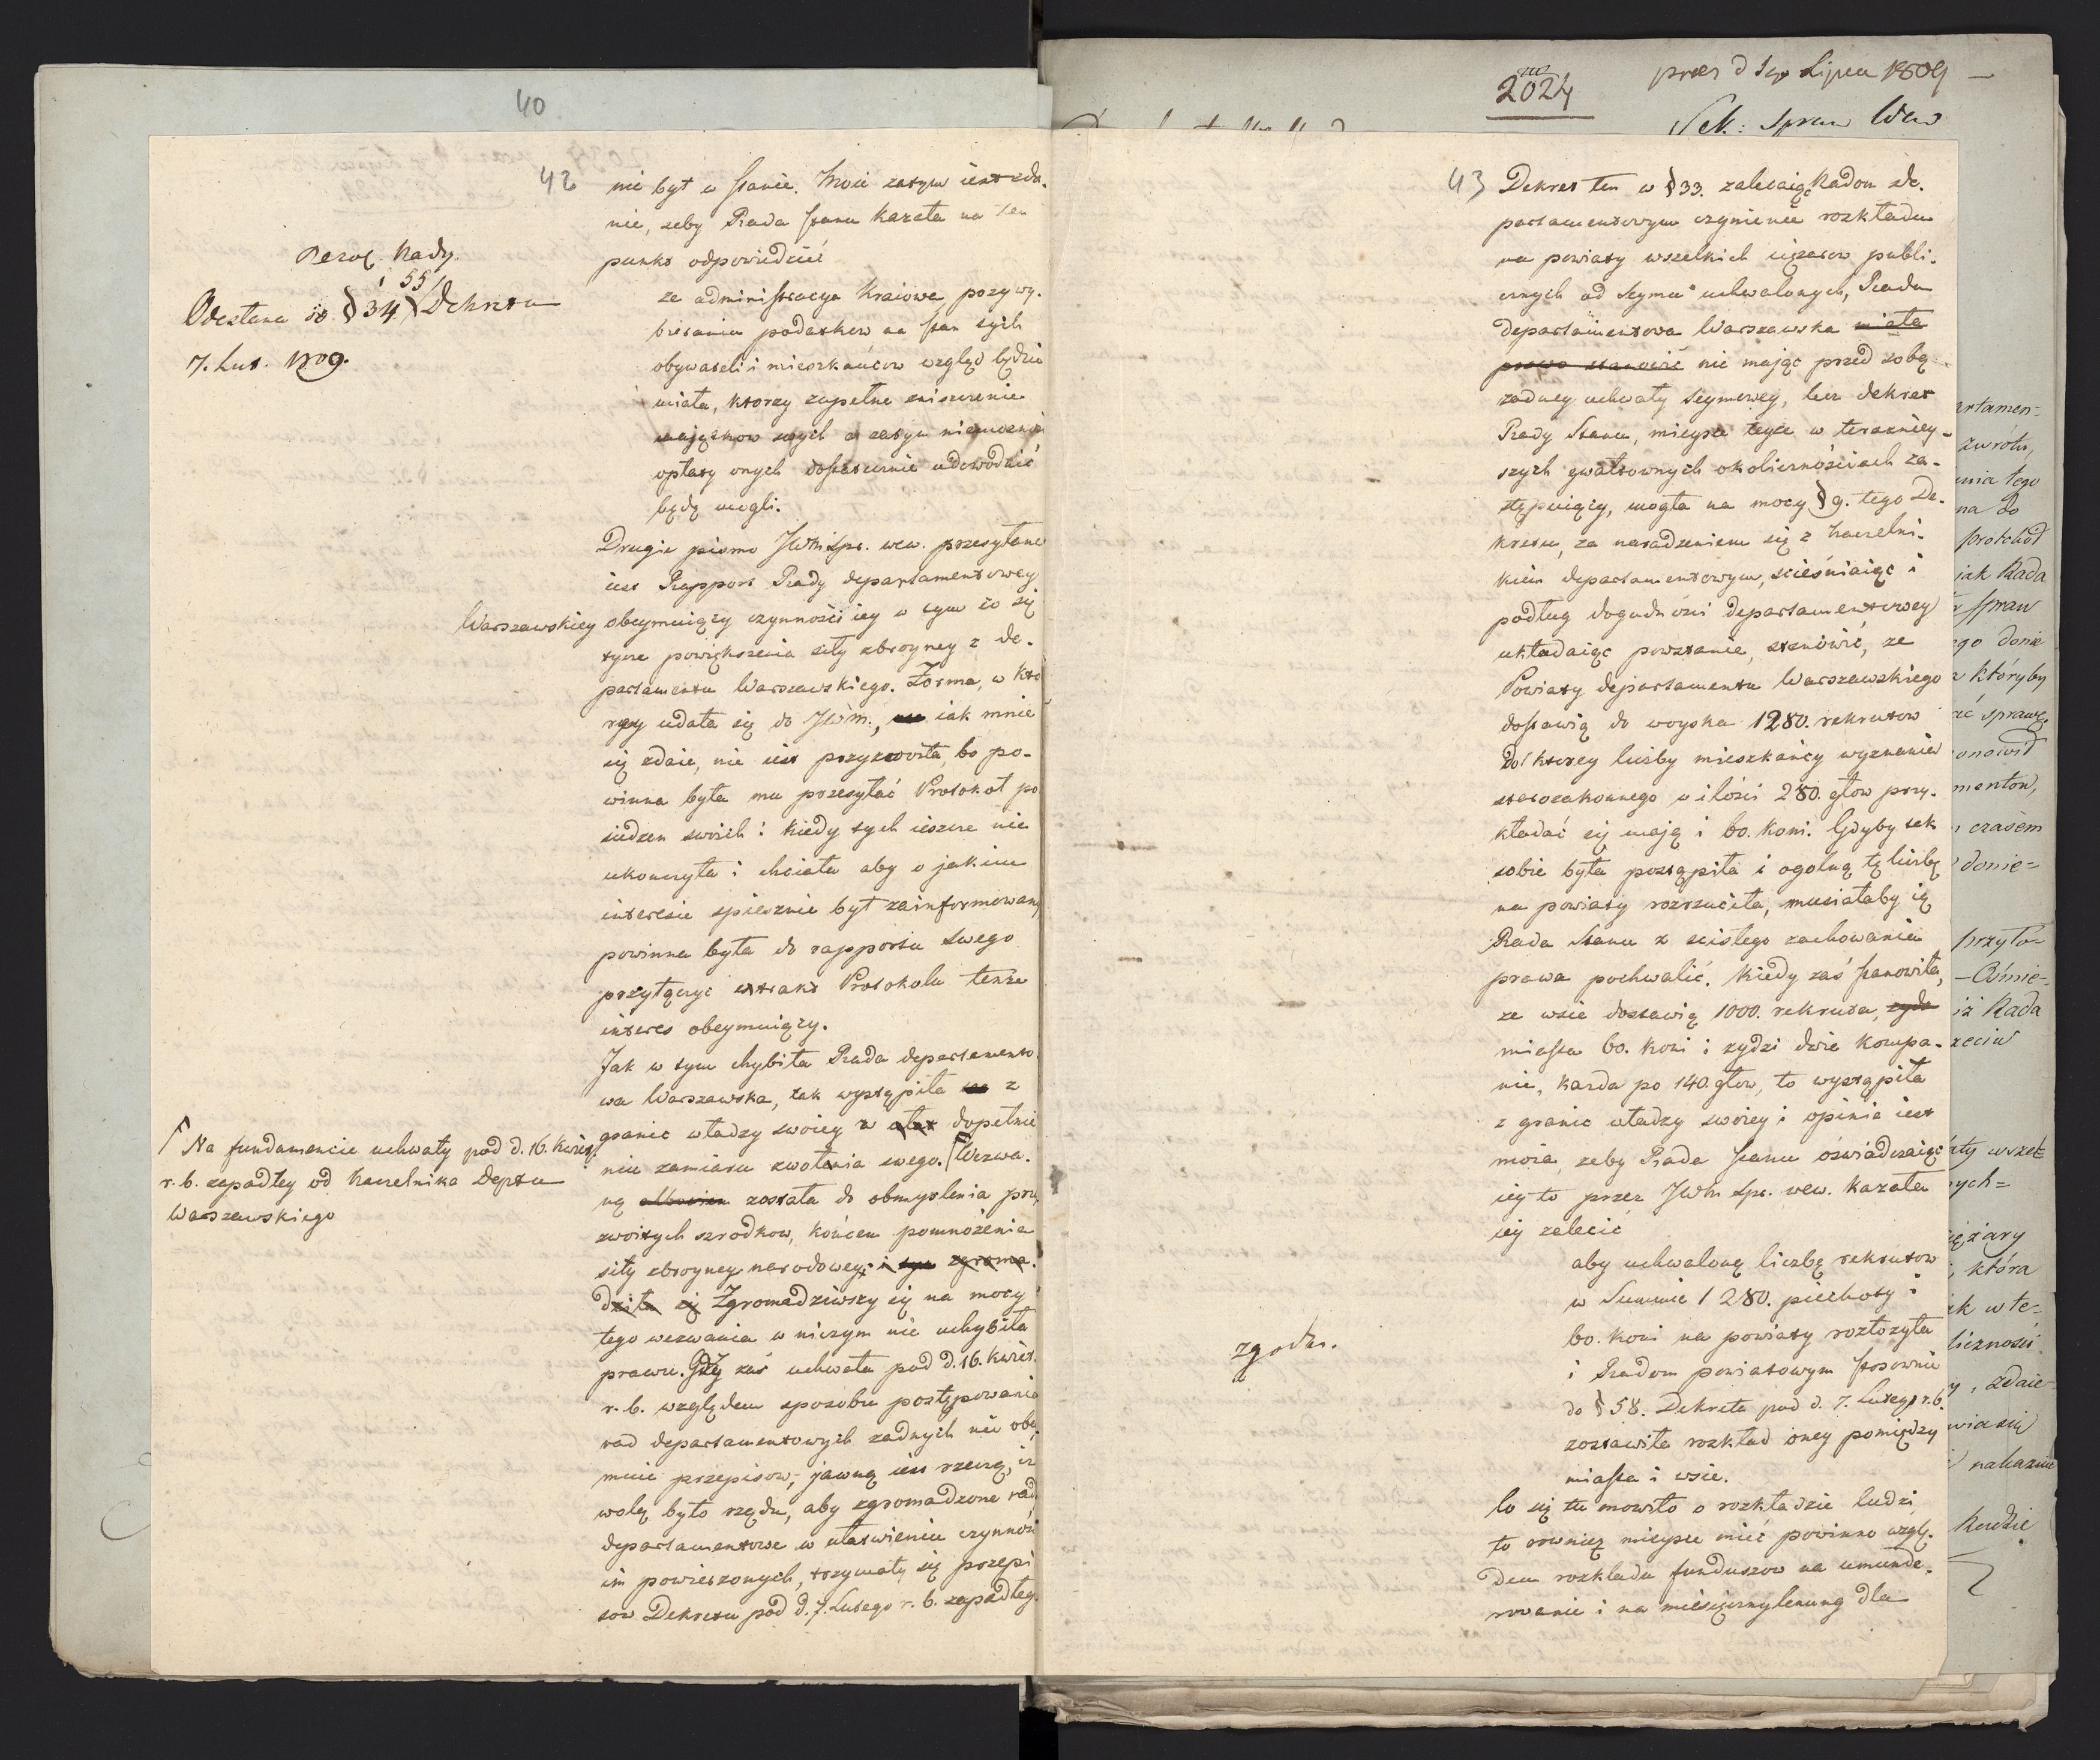 40
42
nie był w stanie. Moie zatym iest zda-
nie, zeby Rada stanu kazała na ten
punkt odpowiedzieć
ze administracya Kraiowa przy wy-
bieraniu podatkow na stan tych
obywateli i mieszkańcow wzgląd będzie
miała, ktorzy zupełne zniszczenie
maiątkow swych a zatym niemożność
opłaty onych dostatecznie udowodnić
będą mogli.
Drugie pismo JWMSpr. wew. przesyłane
iest Rapport Rady departamentowey
Warszawskiey obeymuiący czynności iey w tym co się
tycze powiększenia siły zbroyney z de-
partamentu Warszawskiego. Forma, w kto
rey udała się do JWM., iak mnie
się zdaie, nie iest przyzwoita, bo po-
winna była mu przesyłać Protokoł po
siedzen swoich: kiedy tych ieszcze nie
ukonczyła i chciała aby o jakim
interesie spiesznie był zainformowany
powinna była do rapportu swego
przyłączyć extrakt Protokołu tenże
interes obeymuiący.
Jak w tym chybiła Rada departamento-
wa Warszawska, tak wystąpiła z
granic władzy swoiey w dopełnie
niu zamiaru zwołania swego. Wezwa-
ną została do obmyslenia przy
zwoitych szrodkow, końcem pomnożenia
siły zbroyney narodowey: i tym zgroma-
dziła się Zgromadziwszy się na mocy
tego wezwania w niczym nie uchybiła
prawu. Gdy zaś uchwała pod d. 16. Kwiet.
r. b. względem sposobu postępowania
rad departamentowych zadnych nie obey
muie przepisow, jawną iest rzeczą, iż
wolą było rządu, aby zgromadzone rady
departamentowe w ułatwieniu czynności
im powierzonych, trzymały się przepi
sow Dekretu pod d. 7. Lutego r. b. zapadłego
Rezol. Rady.
i 55
Odesłana do § 34. Dekretu
7. Lut. 1809.
Na fundamencie uchwały pod d. 16. Kwiet.
r. b. zapadłey od Naczelnika Deptu
Warszawskiego
2024
prez d Lipca 1809
Sek: Spraw Wew
43
Dekret ten w § 33. zalecaiąc Radom de-
partamentowym czynienie rozkładu
na powiaty wszelkich ciężarow publi-
cznych od Seymu uchwalonych, Rada
departamentowa Warszawska miała
prawo stanowić nie mając przed sobą
zadney uchwały Seymowey, lecz dekret
Rady Stanu, mieysce teyże w teraźniey-
szych gwałtownych okolicznościach za-
stępuiący, mogła na mocy § 9. tego De-
kretu, za naradzeniem się z Naczelni-
kiem departamentowym, scieśniaiąc i
podług dogodności departamentowey
układaiąc powstanie, stanowić, ze
Powiaty departamentu Warszawskiego
dostawią do woyska 1280. rekrutow
do ktorey liczby mieszkańcy wyznania
starozakonnego w ilości 280. głow przy-
kładać się maią i 60. koni. Gdyby tak
sobie była postąpiła i ogolną tę liczbę
na powiaty rozrzuciła, musiałaby ią
Rada Stanu z scisłego zachowania
prawa pochwalić. Kiedy zaś stanowiła,
ze wsie dostawią 1000. rekruta,
miasta 60. koni i zydzi dwie kompa-
nie, kazda po 140 głow, to wystąpiła
z granic władzy swoiey i opinia iest
moia, zeby Rada stanu oświadczaiąc
iey to przez JWM Spr. wew. kazała
iey zalecić
aby uchwaloną liczbę rekrutow
w Summie 1280. piechoty i
60. koni na powiaty rozłożyła
i Radom powiatowym stosownie
do § 58. Dekretu pod d. 7. Lutego r. b.
zostawiła rozkład oney pomiędzy
miasta i wsie.
Co się tu mowiło o rozkładzie ludzi
to rownież mieysce mieć powinno wzglę-
dem rozkładu funduszow na umundu-
rowanie i na miesięczny lenung dla
zgoda.
artamen=
zwrotu,
nia tego
na do
protokoł
jak Rada
spraw
go donie
któryby
ić sprawę
mentow,
czasem
donie=
przyło=
iż Rada
zeciw
ych=
iężary
, która
ak w te=
liczności
y, zdaie
nakazuie